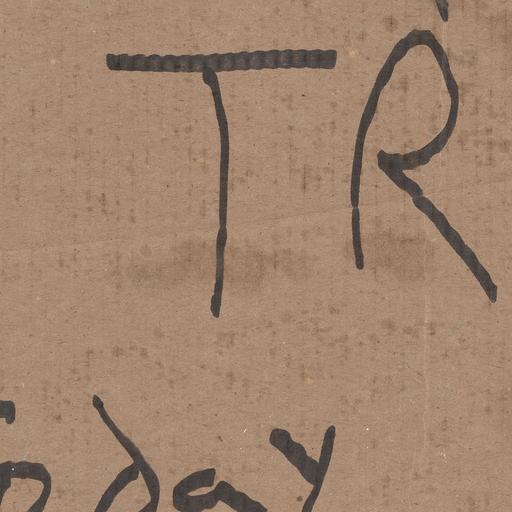 TR
oday